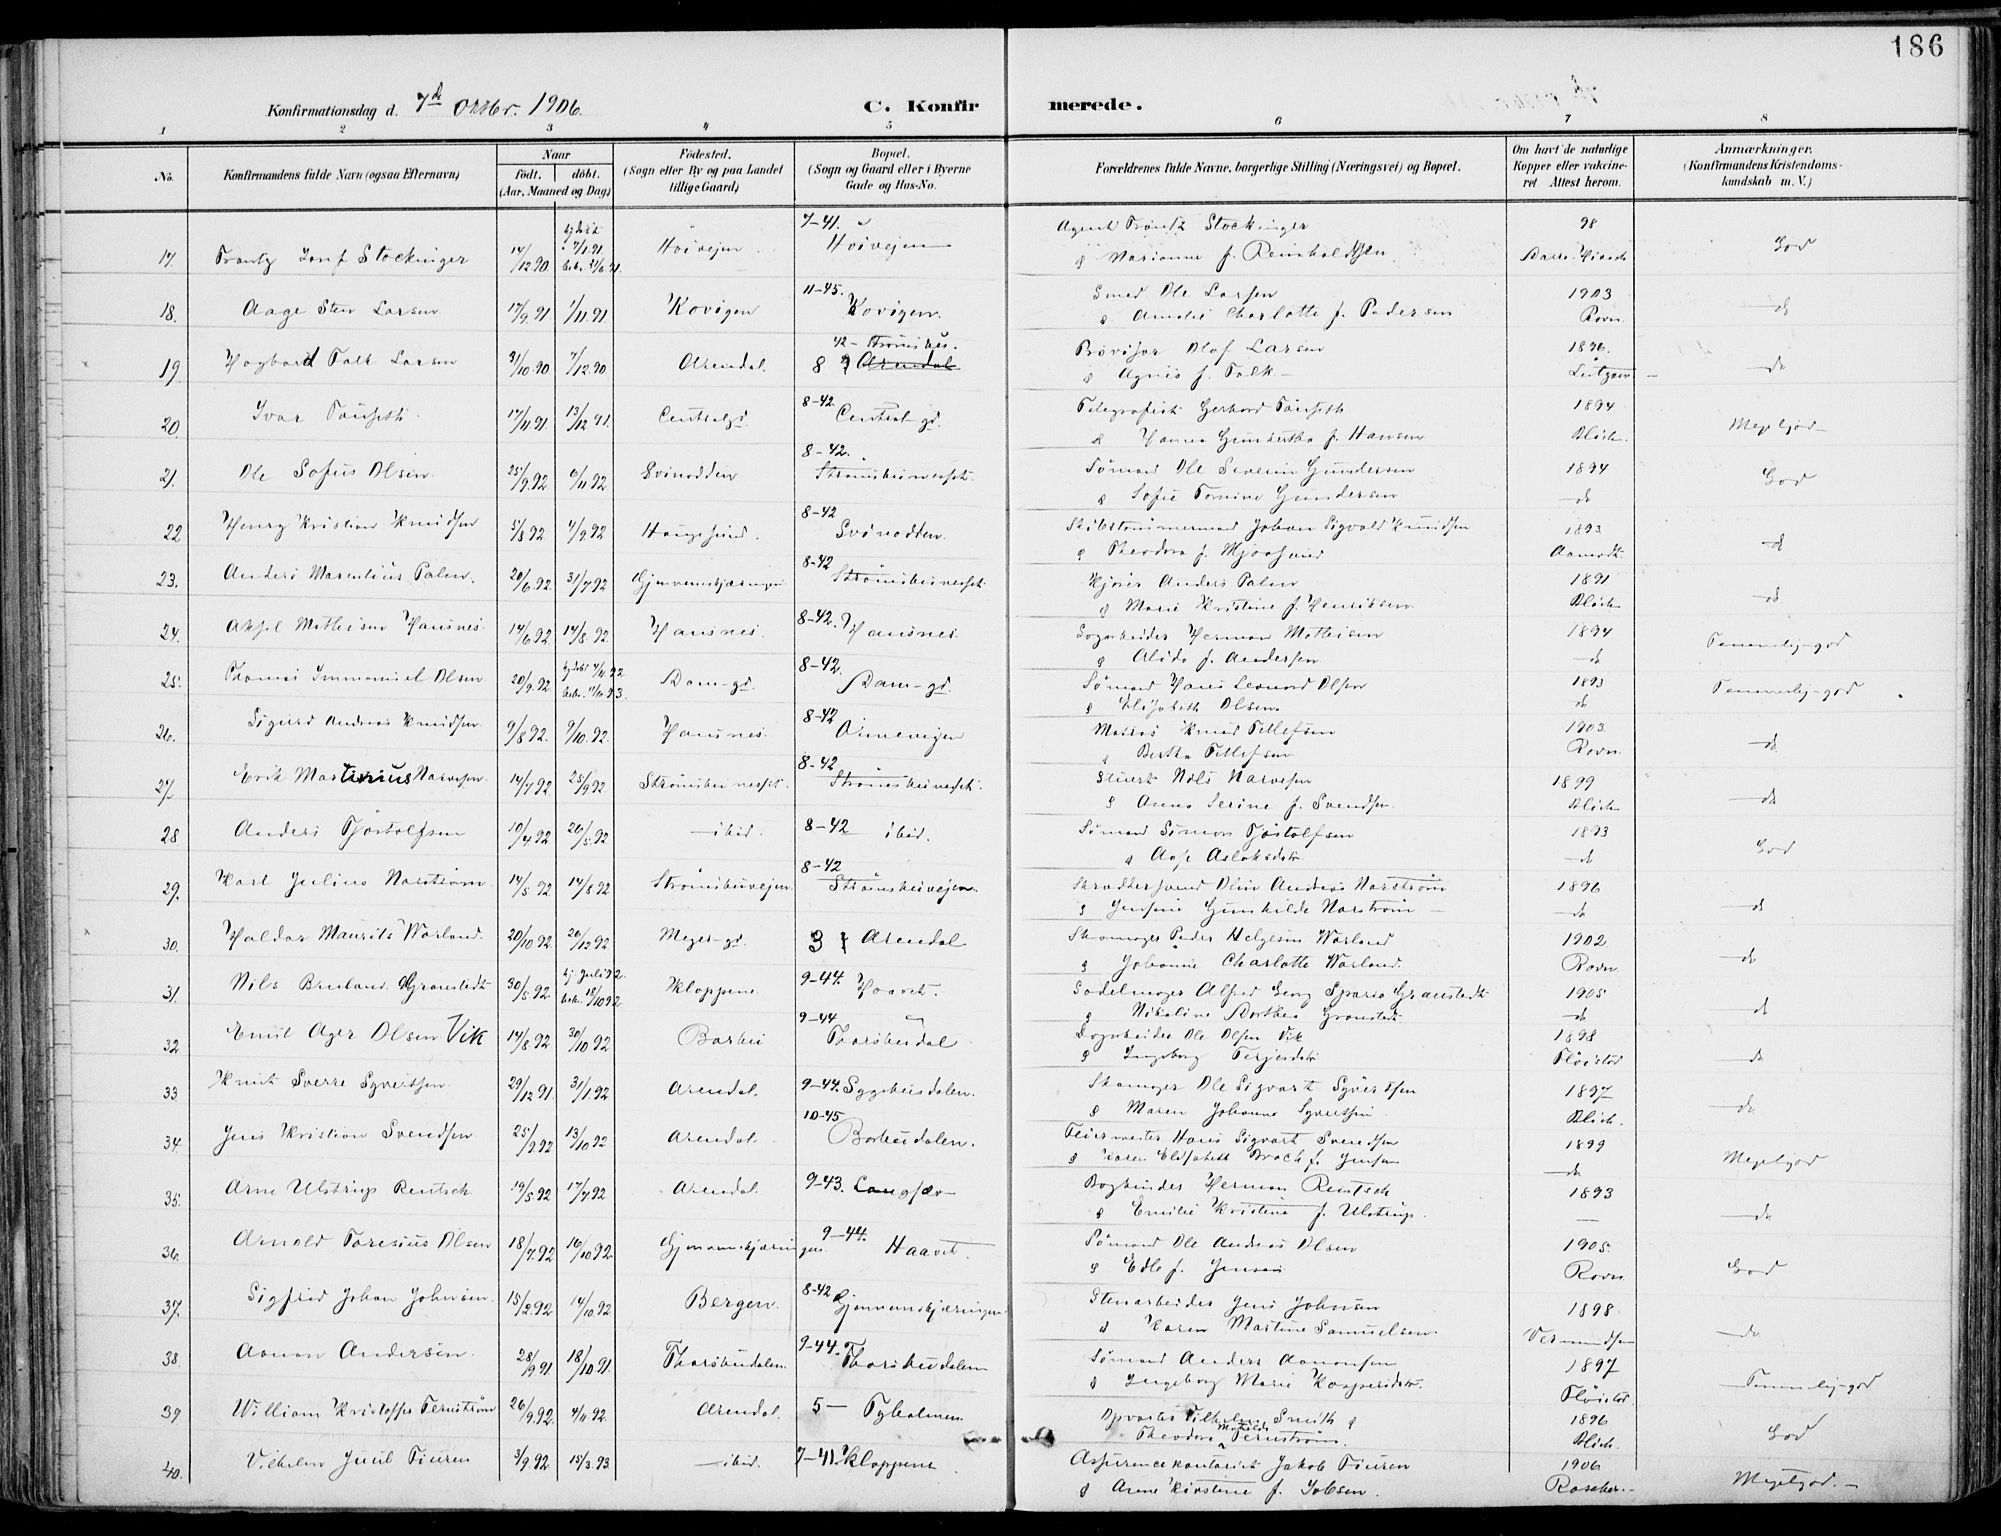 186
Konfirmationsdag d. 7d Oktbr. 1906.
C. Konfirmerede.
1 2 3 4 5 6 7 8
No. Konfirmandens fulde Navn (ogsaa Efternavn) Naar født. døbt. (Aar, Maaned og Dag) Fødested. (Sogn eller By og paa Landet tillige Gaard) Bopæl. (Sogn og Gaard eller i Byerne Gade og Hus-No. Forældrenes fulde Navne, borgerlige Stilling (Næringsvei) og Bopæl. Om havt de naturlige Kopper eller vakcineret Attest herom. Anmærkninger. (Konfirmandens Kristendomskundskab m. V.)
7-41. Agent Frantz Stockinger 98
17. Frantz Josef Stockinger 14/12 90 Høivejen Høivejen God
g Marianne f. Reinholdtsen
11-45. Smed Ole Larsen 1903
18. Aage Sten Larsen 17/9 91 1/11 91 Kovigen Kovigen. do
Charlotte f. Pedersen Rovn.
42- Provisor Olaf Larsen 1896.
19 Hagbard Falk Larsen 31/10 90 7/12 90 Arendal. 8 Arendal do
g Agnes f. Falk
8-42 Telegrafist Gerhard Fauseth 1894
20 Ivar Fauseth 17/11 91 13/12 91. Centralgd. Central gd. Megetgod
g Hanna Gundertha f. Hansen Blich.
8-42. Sømand Ole Severin Gundersen 1894
21. Ole Sofus Olsen 25/9 92 6/11 92 Svinodden Strømsbunesset. God
g Sofie Tomine Gundersen do
8-42 Skibstømmermand Johan Sigvald Knudsen 1893
22 Henry Kristian Knudsen 5/8 92 4/9 92 Haugesund. Svinodden. do
g Theodora f. Mjaasund Aamodt
8-42 Kjører Anders Palen 1891
23. Anders Marentius Palen. 20/6 92 31/7 92 Gjennemskjæringen Strømsbunesset do
g Marie Kristine f. Henriksen Blich
8-42. Herman Mathisen 1894
24. Aksel Mathisen Hansnes 14/6 92 14/8 92 Hansnes. Hansnes Temmelig god
g Alida f. Andersen do
8-42. Sømand Hans Leonard Olsen 1893
25. Thomas Immanuel Olsen 20/9 92 Dam-gd. Dam-gd. Temmelig god
g Elisabeth Olsen do
8-42 Matros Knud Tellefsen 1903.
26. Sigurd Andreas Knudsen 9/8 92. 9/10 92. Hansnes. do
g Bertha Tellefsen Rovn.
8-42 Stuert Nils Narvesen 1899
27. Erik Martinius Narvesen. 14/7 92 25/9 92 Strømsbunesset. Strømsbunesset. do
g Anna Serine f. Svendsen. Blich
28 Anders Tjøstolfsen 10/4 92 26/5 92 ibid. 8-42 ibid. Sømand Simon Tjøstolfsen 1893 God
g Aase Aslaksdtr. do
8-42 Andreas Narstrøm 1896
29. Karl Julius Narstrøm. 14/5 92 14/8 92 Strømsbuvejen. Strømsbuvejen. do
g Jensine Gunhilde Narstrøm do
30. Haldor Maurits Warland. 20/10 92 26/12 92 Meyer-gd. 3 Arendal Skomager Peder Helgesen Warland 1902 do
g Johanne Charlotte Warland. Rovn
31. Nils Granstedt 30/5 92 Kloppene 9-44. Haavet. Sadelmager Alfred Georg Granstedt 1905 do
g Nikoline Dorthea Granstedt. do
9-44 Ole Olsen Vik 1898
32. Emil Ager Olsen Vik 14/8 92 30/10 92 Barbu Thorsbudal. do
g Ingeborg Terjesdtr. Fløistad
33 Knut Sverre Syvertsen. 29/12 91 31/1 92 Arendal. 9-44. Sygehusdalen. Skomager Ole Sigvart Syvertsen 1897 do
g Maren Johanne Syvertsen. Blich.
10-45 Feiermester Hans Sigvart Svendsen 1899
34. Jens Kristian Svendsen. 25/9 92 13/10 92 Arendal. Barbudalen. Megetgod
g Karen Elisabeth Broch f. Jensen do
35. Arne Ulstrup Rentsch 19/5 92 17/7 92 Arendal. 9-43. Langsæ Bogbinder Herman Rentsch 1893 do
g Emilie Kristine f. Ulstrup.
36. Arnold Toresius Olsen 18/7 92 16/10 92. Gjennemskjæringen. 9-44. Haavet. Sømand Ole Andreas Olsen 1905. God
g Edle f. Jensen Rovn
37. Sigfrid Johan Johnsen. 15/2 92 14/10 92 Bergen. 8-42 Gjennemskjæringen Stenarbeider Jens Johnsen 1898 do
g Karen Martine Samuelsen. Vermundsen
38. Aanon Andersen. 28/9 91 18/10 91. Thorsbudalen. 9-44. Thorsbudalen Sømand Anders Aanonsen 1897 Temmelig god
g Ingeborg Marie Kaspersdtr. Fløistad
39 William Kristoffer Fernstrøm 26/9 92. 4/11 92. Arendal. 5- Tyholmen Opvarter Vilhelm Smith g 1896 God
Theodora Mathilde Fernstrøm. Blich.
40. Vilhelm Juul Fiuren 3/9 92 15/3 93. ibid. 7-41. Kloppene Assurancekontorist Jakob Fiuren 1906 Megetgod.
g Anne Kirstine f. Jobsen. Roscher.